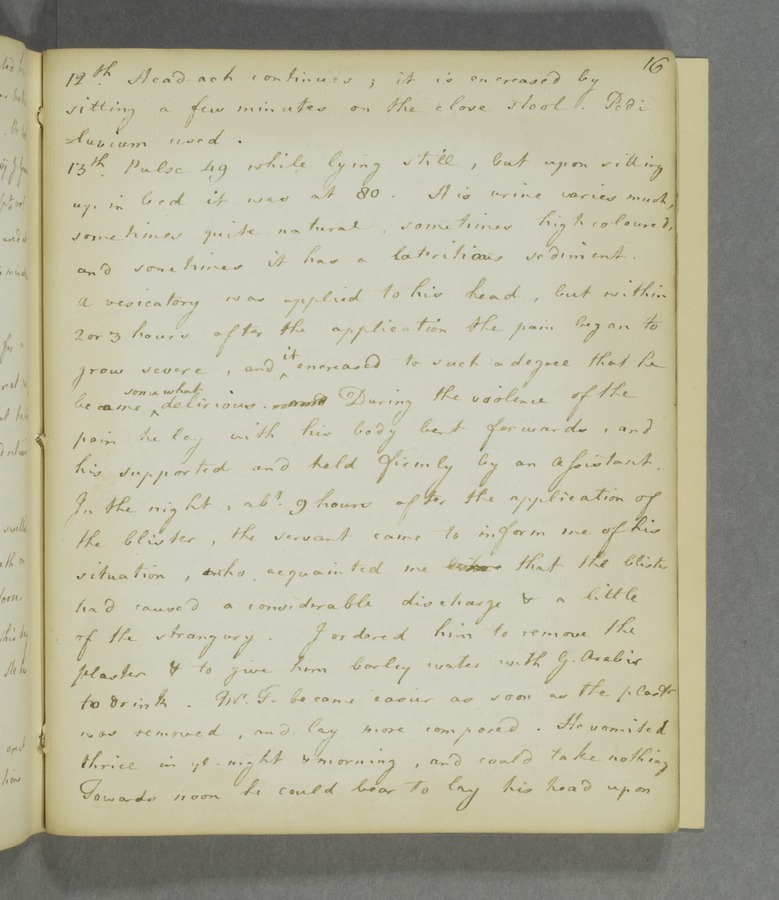 16
12th. Head-ach continues; it is encreased by
sitting a few minutes on the close stool. Pedi
=luvium used.
13th. Pulse 49 while lying still, but upon sitting
up in bed it was at 80. His urine varies much,
sometimes quite natural, sometimes high coloured,
and sometimes it has a lateritious sediment.
A vesicatory was applied to his head, but within
2 or 3 hours after the application the pain began to
grow severe, and it encreased to such a degree that he
became somewhat delirious. During the violence of the
pain he lay with his body bent forwards, and
his supported and held firmly by an Assistant.
In the night, abt. 9 hours after the application of
the blister, the servant came to inform me of his
situation, who acquainted me that the bliste
had caused a considerable discharge & a little
of the strangury. I ordered him to remove the
plaster & to give him barley water with G. Arabic
to drink. W. F. became easier as soon as the plastr
was removed, and lay more composed. He vomited
thrice in ye. night & morning, and could take nothing
Towards noon he could bear to lay his head upon